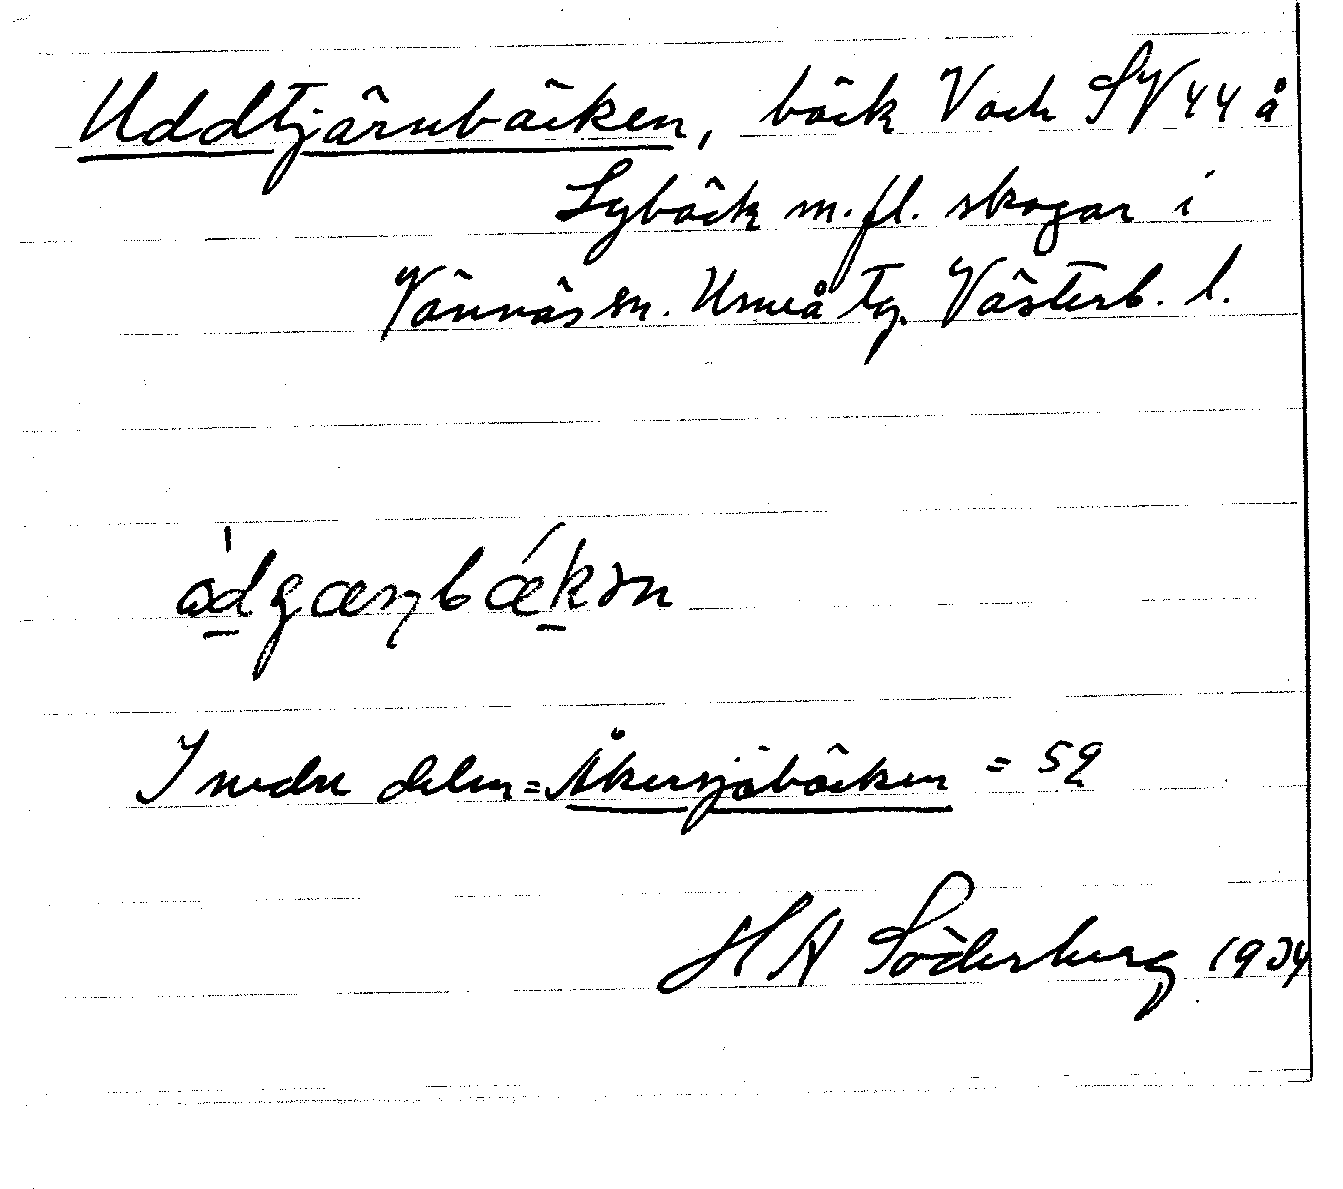 Uddtjärnbäcken, bäck V och SV 44 å
Lybäck m.fl. skogar i
Vännäs sn. Umeå tg. Västerb. l.
I nedre delen = Åkersjöbäcken = 59
H A Söderberg 1934